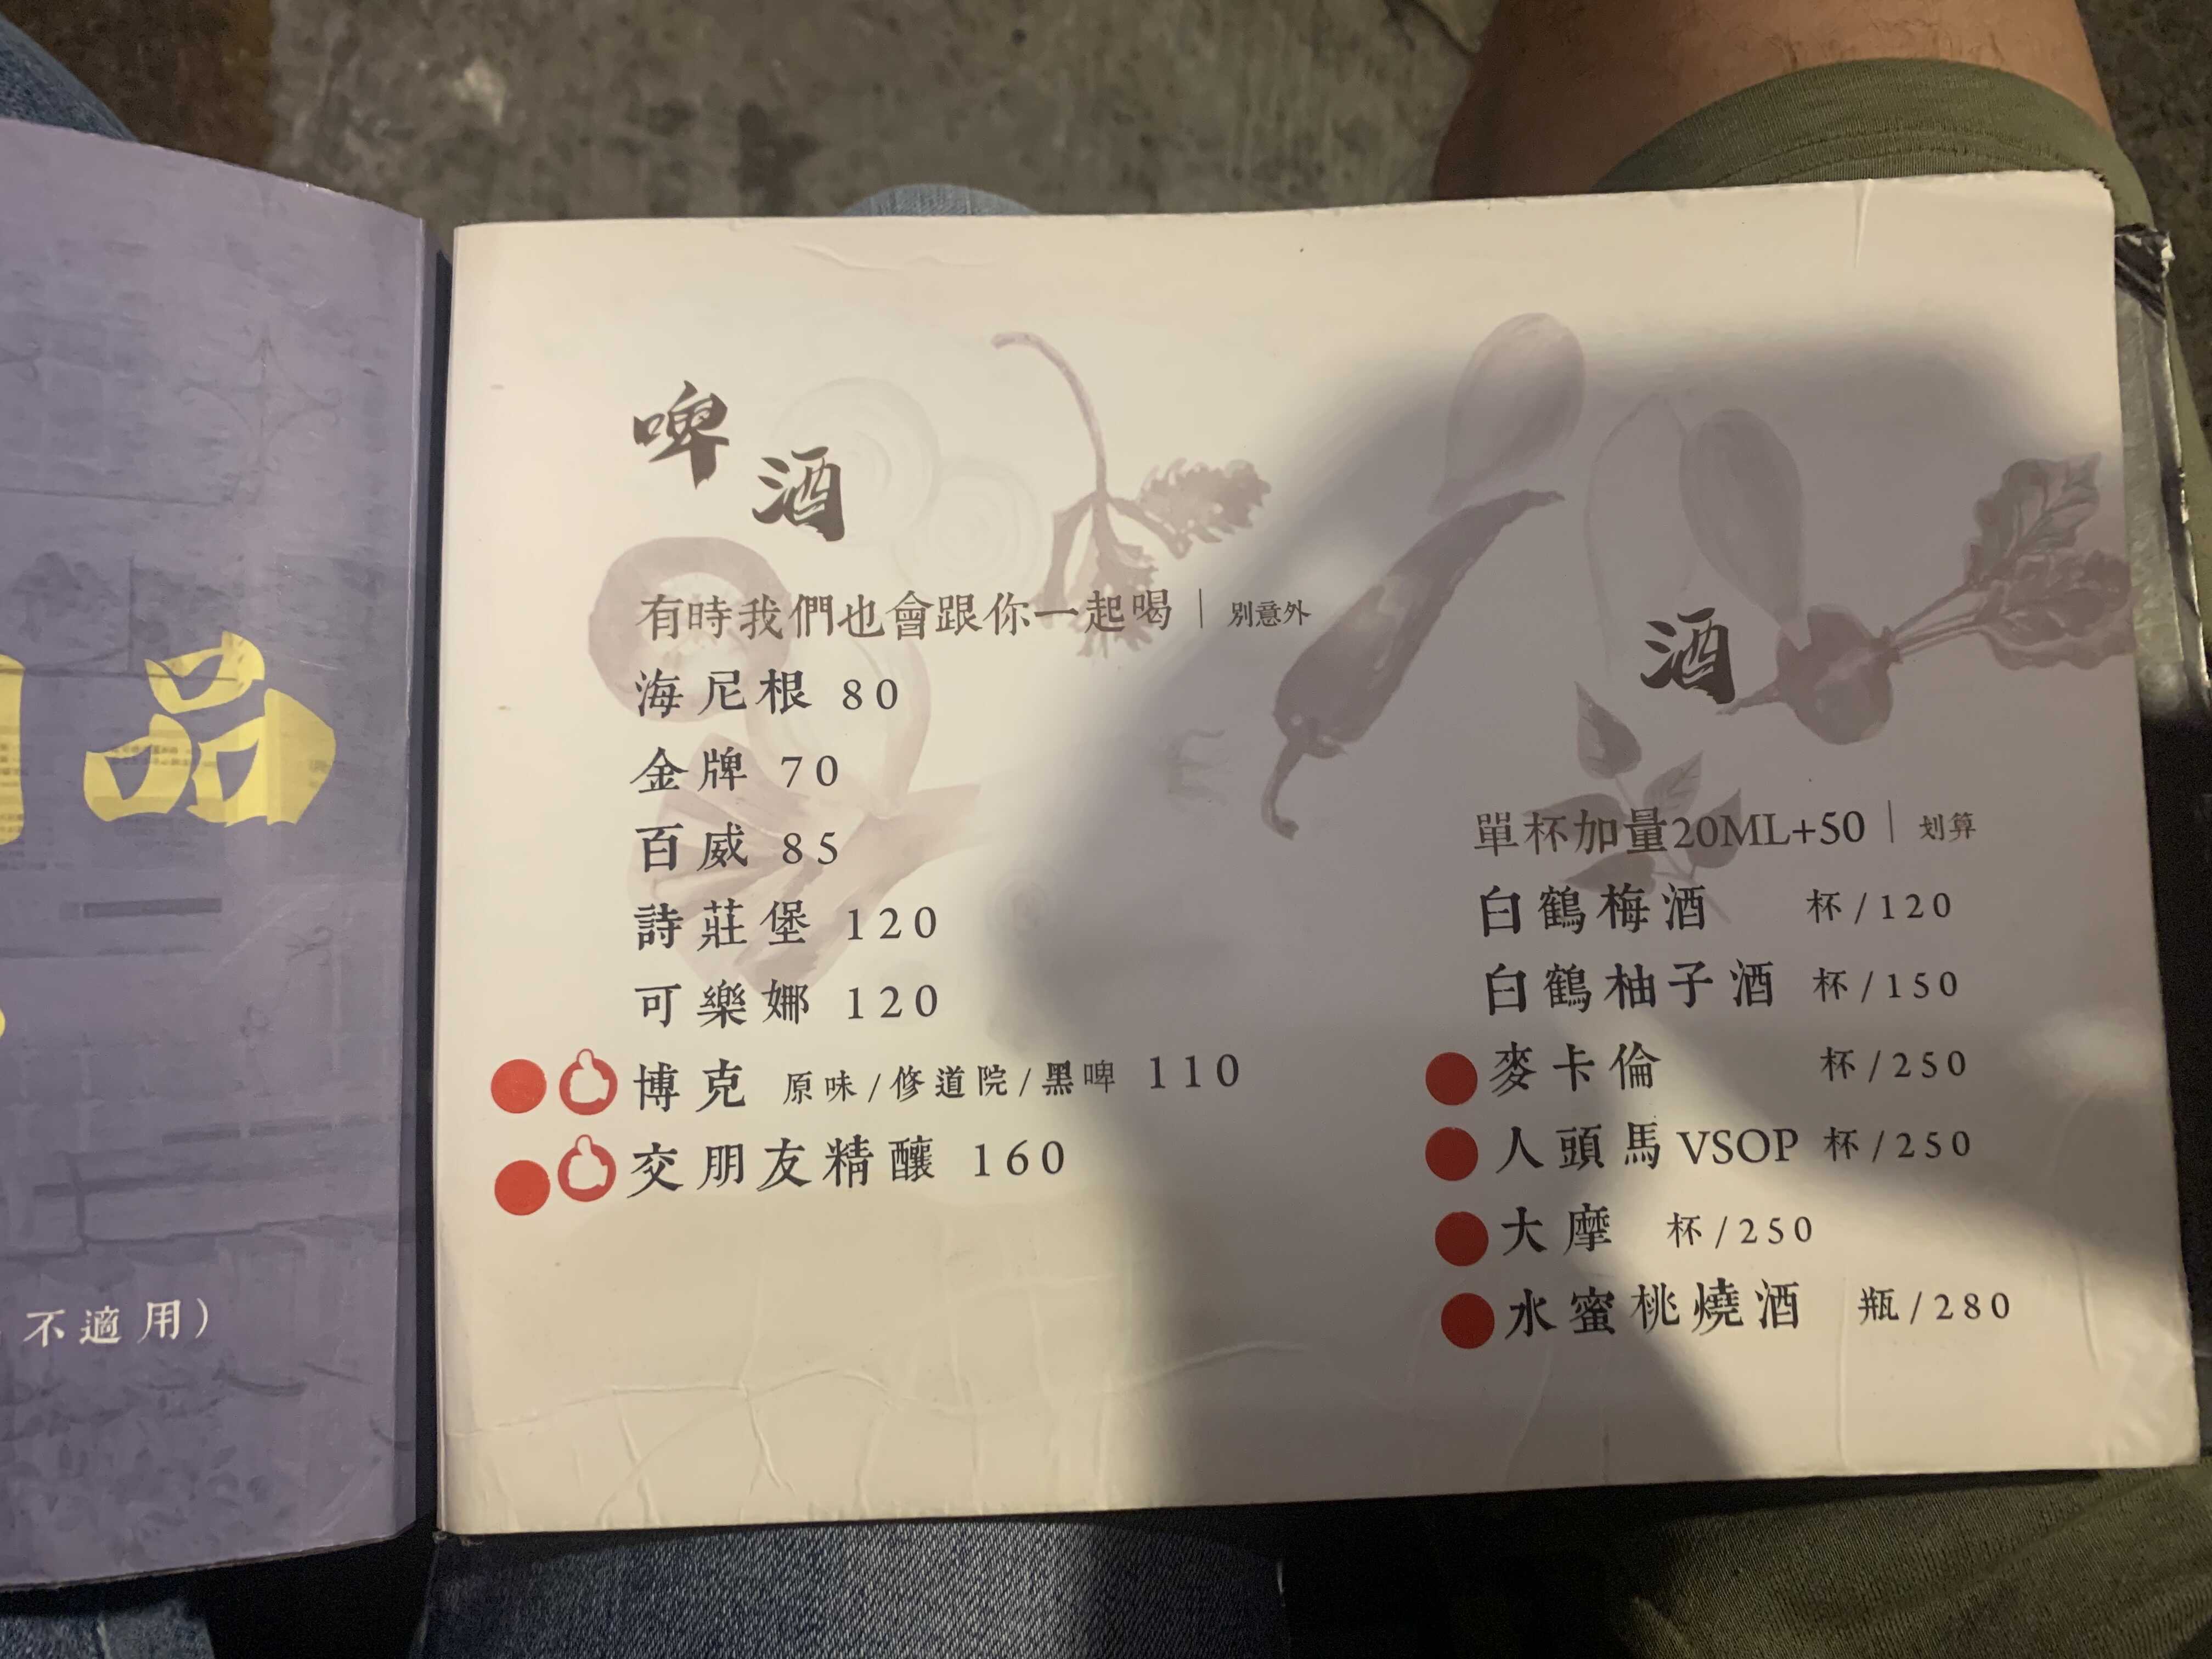 品
不適用）
啤酒
有時我們也會跟你一起喝｜別意外
海尼根 80
金牌 70
百威 85
詩莊堡 120
可樂娜 120
博克 原味/修道院/黑啤 110
交朋友精釀 160
酒
單杯加量20ML+50｜划算
白鶴梅酒 杯/120
白鶴柚子酒 杯/150
麥卡倫 杯/250
人頭馬VSOP 杯/250
大摩 杯/250
水蜜桃燒酒 瓶/280